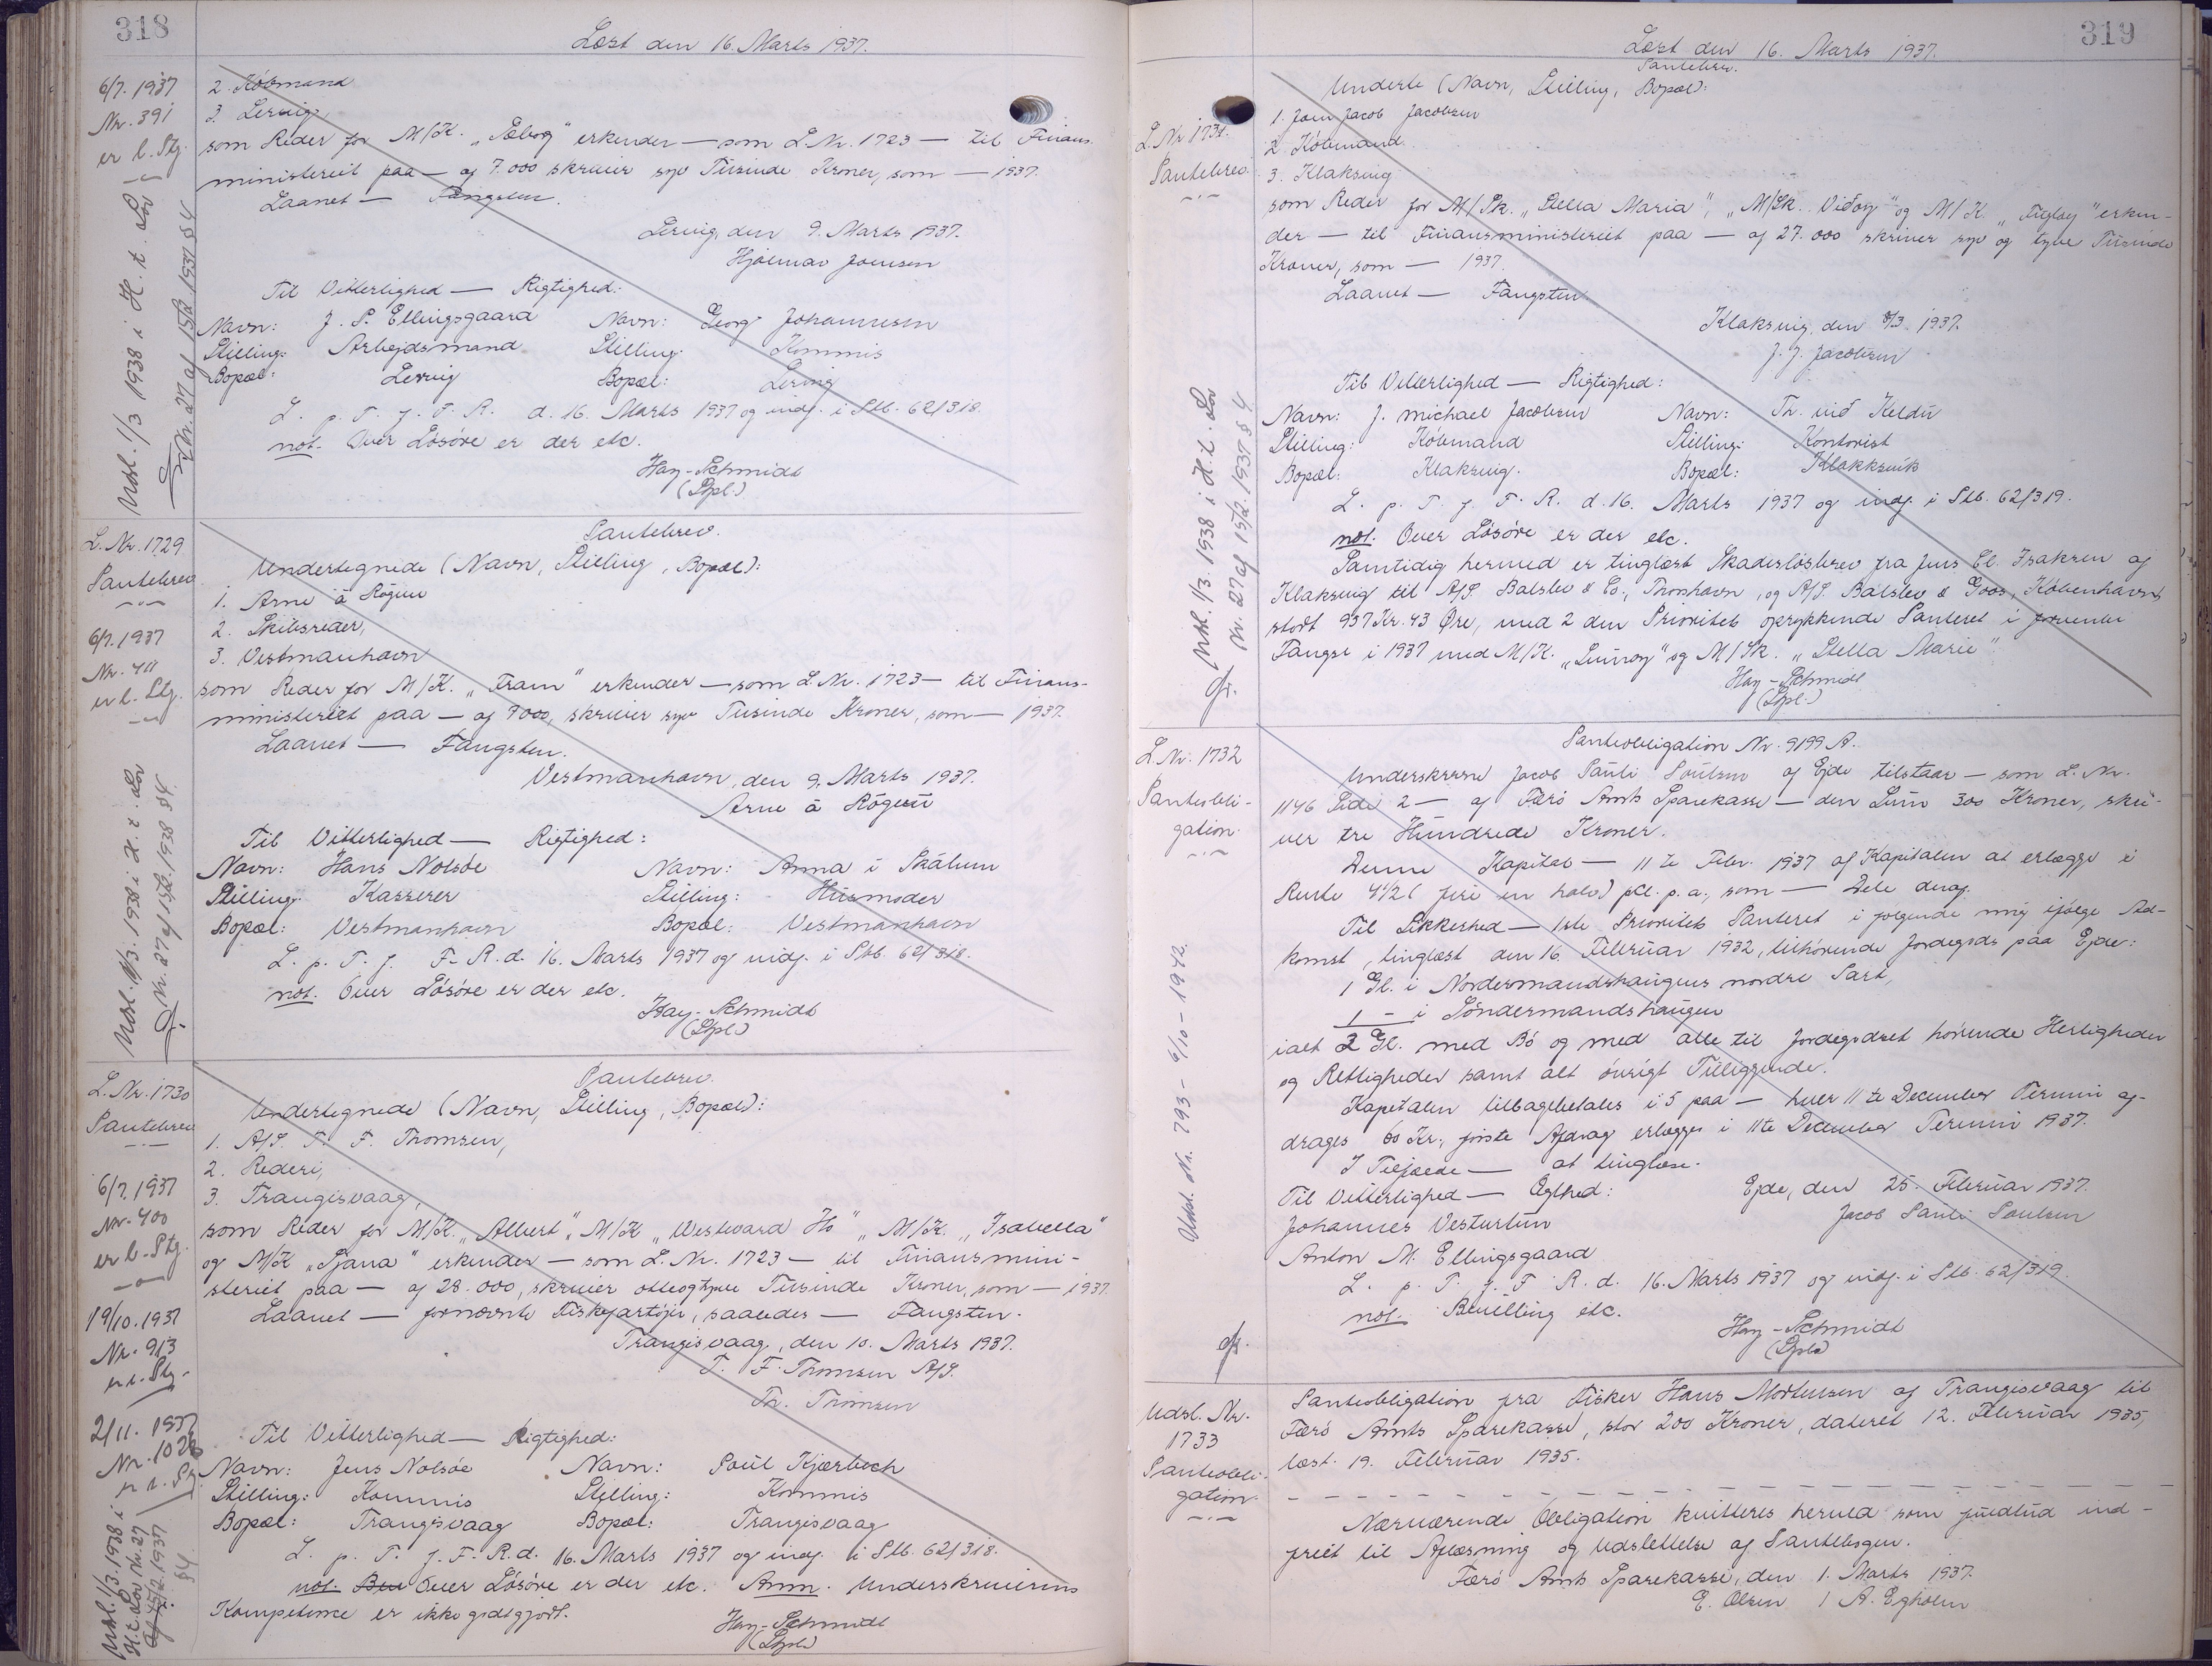 318
Læst den 16. Marts 1937.
6/7. 1937
Nr. 391
er l. Ptg.
Udsl. 1/3 1938 i H. t. Lov
Nr. 27 af 15/2 1937 § 4
2. Købmand
3. Lervig
som Reder for M/K. „Søborg" erkender — som L. Nr. 1723 — til Finans-
ministeriet paa — af 7.000 skriver syv Tusinde Kroner, som — 1937.
Laanet — Fangsten.
Lervig, den 9. Marts 1937.
Hjalmar Joensen
Til Vitterlighed — Rigtighed:
Navn: J. P. Ellingsgaard Navn: Georg Johannesen
Stilling: Arbejdsmand Stilling: Kommis
Bopæl: Lervig Bopæl: Lervig
L. p. T. f. F. R. d. 16. Marts 1937 og indf. i Ptb. 62/318.
not. Over Løsøre er der etc.
Hay-Schmidt
(Spl.)
L. Nr. 1729
Pantebrev
6/7. 1937
Nr. 411
er l. Ptg.
Udsl. 1/3. 1938 i H. t. Lov
Nr. 27 af 15/2. 1938 § 4.
Pantebrev.
Undertegnede (Navn, Stilling, Bopæl):
1. Arne á Røgum
2. Skibsreder,
3. Vestmanhavn
som Reder for M/K. „Fram" erkender — som L. Nr. 1723 — til Finans-
ministeriet paa — af 7000, skriver syv Tusinde Kroner, som — 1937.
Laanet — Fangsten.
Vestmanhavn, den 9. Marts 1937.
Arne á Røgum
Til Vitterlighed — Rigtighed:
Navn: Hans Nolsøe Navn: Anna i Skálum
Stilling: Kasserer Stilling: Husmoder
Bopæl: Vestmanhavn Bopæl: Vestmanhavn
L. p. T. f. F. R. d. 16. Marts 1937 og indf. i Ptb. 62/318.
not. Over Løsøre er der etc.
Hay-Schmidt
(Spl.)
L. Nr. 1730
Pantebrev
6/7. 1937
Nr. 400
er l. Ptg.
19/10. 1937
Nr. 913
er l. Ptg.
2/11. 1937
Nr. 1028
er l. Ptg.
Udsl. 1/3. 1938 i
H. t. Lov Nr. 27
af 15/2. 1937
§ 4.
Pantebrev.
Undertegnede (Navn, Stilling, Bopæl):
1. A/S. T. F. Thomsen,
2. Rederi,
3. Trangisvaag,
som Reder for M/K. „Albert", M/K „Westward Ho", M/K. „Isabella"
og M/K „Tjana" erkender — som L. Nr. 1723 — til Finansmini-
steriet paa — af 28.000, skriver otteogtyve Tusinde Kroner, som — 1937.
Laanet — fornævnte Fiskefartøjer, saaledes — Fangsten.
Trangisvaag, den 10. Marts 1937.
T. F. Thomsen A/S.
Th. Thomsen
Til Vitterlighed — Rigtighed:
Navn: Jens Nolsøe Navn: Poul Kjærbech
Stilling: Kommis Stilling: Kommis
Bopæl: Trangisvaag Bopæl: Trangisvaag
L. p. T. f. F. R. d. 16. Marts 1937 og indf. i Ptb. 62/318.
not. Over Løsøre er der etc. Anm. Underskriverens
Kompetence er ikke godtgjort.
Hay-Schmidt
(Spl.)
319
Læst den 16. Marts 1937.
L. Nr 1731.
Pantebrev
Udsl. 1/3. 1938 i H. t. Lov
Nr. 27 af 15/2. 1937 § 4
Pantebrev.
Underte (Navn, Stilling, Bopæl):
1. Joen Jacob Jacobsen
2. Købmand.
3. Klaksvig
som Reder for M/Sk. „Stella Maria", „M/Sk. Viðoy" og M/K. „Fugloy" erken-
der — til Finansministeriet paa — af 27.000 skriver syv og tyve Tusinde
Kroner, som — 1937.
Laanet — Fangsten.
Klaksvig, den 8/3. 1937.
J. J. Jacobsen
Til Vitterlighed — Rigtighed:
Navn: J. Michael Jacobsen Navn: Th. við Keldu
Stilling: Købmand Stilling: Kontorist
Bopæl: Klaksvig. Bopæl: Klakksvik
L. p. T. f. F. R. d. 16. Marts 1937 og indf. i Ptb. 62/319.
not. Over Løsøre er der etc.
Samtidig hermed er tinglæst Skadesløsbrev fra Jens Cl. Isaksen af
Klaksvig til A/S. Balslev & Co., Thorshavn, og A/S. Balslev & Goos, København,
stort 937 Kr. 43 Øre, med 2 den Prioritets oprykkende Panteret i forventet
Fangst i 1937 med M/K. „Svinoy" og M/Sk. „Stella Marie".
Hay-Schmidt
(Spl.)
L. Nr. 1732
Panteobli-
gation.
Udsl. Nr. 793 - 6/10 - 1942.
Panteobligation Nr. 9199 A.
Underskrevne Jacob Pauli Poulsen af Ejde tilstaar — som L. Nr.
1146 Side 2 — af Færø Amts Sparekasse — den Sum 300 Kroner, skri-
ver tre Hundrede Kroner.
Denne Kapital — 11 te Febr. 1937 af Kapitalen at erlægge i
Rente 4 1/2 (fire en halv) pCt. p. a., som — Dele deraf.
Til Sikkerhed — 1ste Prioritets Panteret i følgende mig ifølge Ad-
komst, tinglæst den 16. Februar 1932, tilhørende Jordegods paa Ejde:
1 Gl. i Nordermandshaugens nordre Part,
1 - i Søndermandshaugen
ialt 2 Gl. med Bø og med alle til Jordegodset hørende Herligheder
og Rettigheder samt alt øvrigt Tilliggende.
Kapitalen tilbagebetales i 5 paa — hver 11 te December Termin af-
drages 60 Kr., første Afdrag erlægges i 11te December Termin 1937.
I Tilfælde — at tinglæse.
Til Vitterlighed — Ægthed: Ejde, den 25. Februar 1937.
Johannes Vesturtún Jacob Pauli Poulsen
Anton M. Ellingsgaard
L. p. T. f. F. R. d. 16. Marts 1937 og indf. i Ptb. 62/319.
not. Bevilling etc.
Hay-Schmidt
(Spl.)
Udsl. Nr.
1733
Panteobli-
gation.
Panteobligation fra Fisker Hans Mortensen af Trangisvaag til
Færø Amts Sparekasse, stor 200 Kroner, dateret 12. Februar 1935,
læst. 19. Februar 1935.
Nærværende Obligation kvitteres herved som fuldtud ind-
friet til Aflæsning og Udslettelse af Pantebogen.
Færø Amts Sparekasse, den 1. Marts 1937.
E. Olsen / A. Egholm